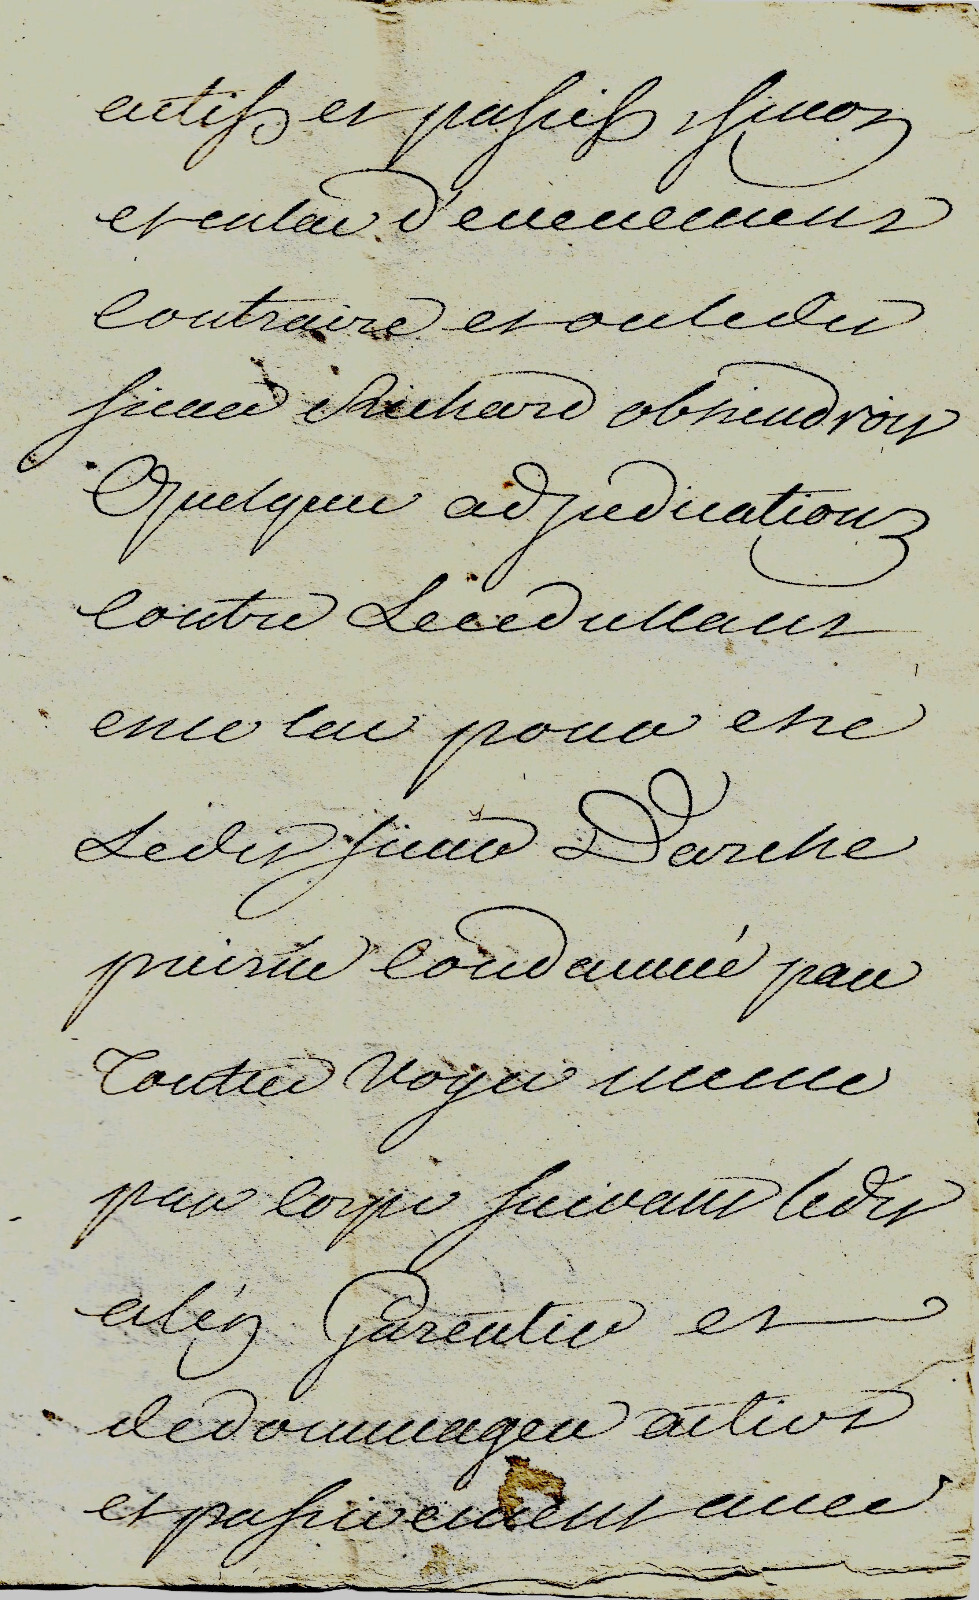 actifs et passifs, sinon
et en cas d'evenement
contraire et ou ledit
sieur Richard obtiendroit
Quelques adjudications
contre Lecedullant
en ce cas pour etre
Ledit sieur Darche
pris et condamné par
Toutes Voyes meme
par corps suivant ledit
a les Garentir et
dedommager activt
et passivement avec